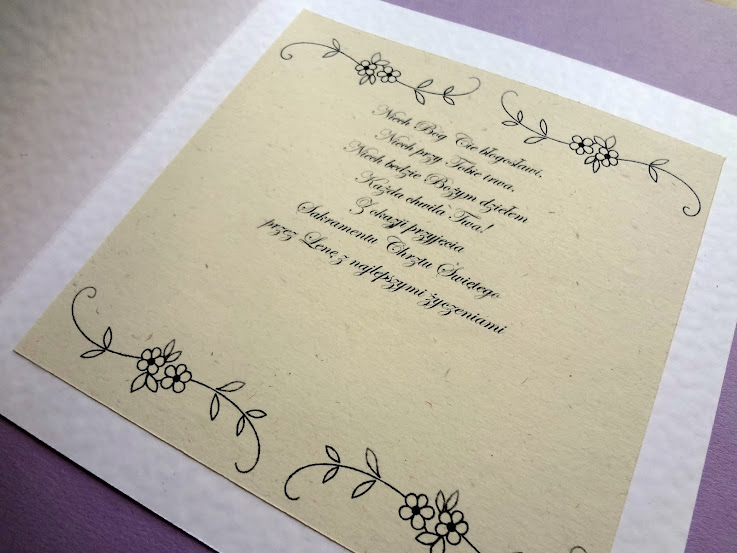 Niech Bóg Cię błogosławi,
Niech przy Tobie trwa.
Niech będzie Bożym dziełem
Każda chwila Twa!
Z okazji przyjęcia
Sakramentu Chrztu Świętego
przez Lenę z najlepszymi życzeniami